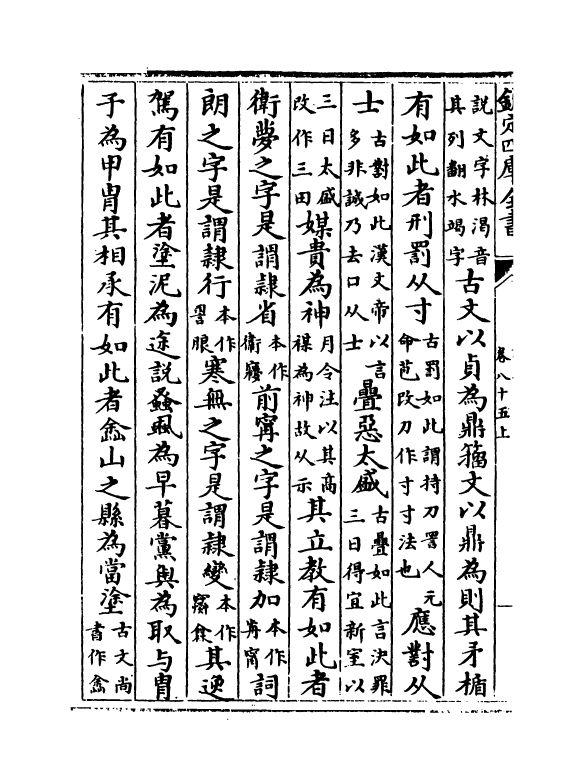 欽定四庫全書
卷八十五上
說文字林渴音
其列翻水竭字
古文以貞為鼎籀文以鼎為則其矛楯
有如此者刑罰从寸
古罰如此謂持刀詈人元
命苞改刀作寸寸法也
應對从
士
古對如此漢文帝以言
多非誠乃去口从士
疊惡太盛
古疊如此言決罪
三日得宜新室以
三日太盛
改作三田
媒貴為神
月令注以其高
禖為神故从示
其立教有如此者
衛夢之字是謂隸省
本作
衞㝱
前寧之字是謂隸加
本作
歬寍
詞
朗之字是謂隸行
本作
䛐朖
寒無之字是謂隸變
本作
其
駕有如此者塗泥為途說蚤虱為早暮黨與為取与冑
子為甲冑其相承有如此者嵞山之縣為當塗
古文尚
書作嵞